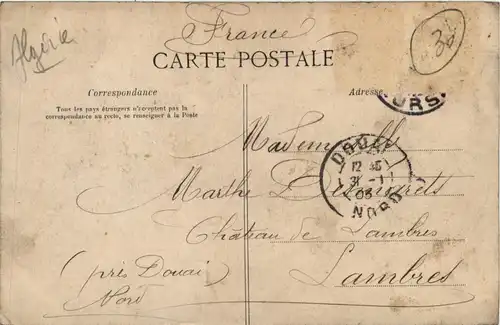 Algérie
France
38
CARTE POSTALE
Correspondance
Tous les pays étrangers n'acceptent pas la
correspondance au recto, se renseigner à la Poste
Adresse
OURS
Mademoiselle
Marthe
Château de Lambres
Lambres
(près Douai
Nord
DOUAI
12
31 -1
05
NORD